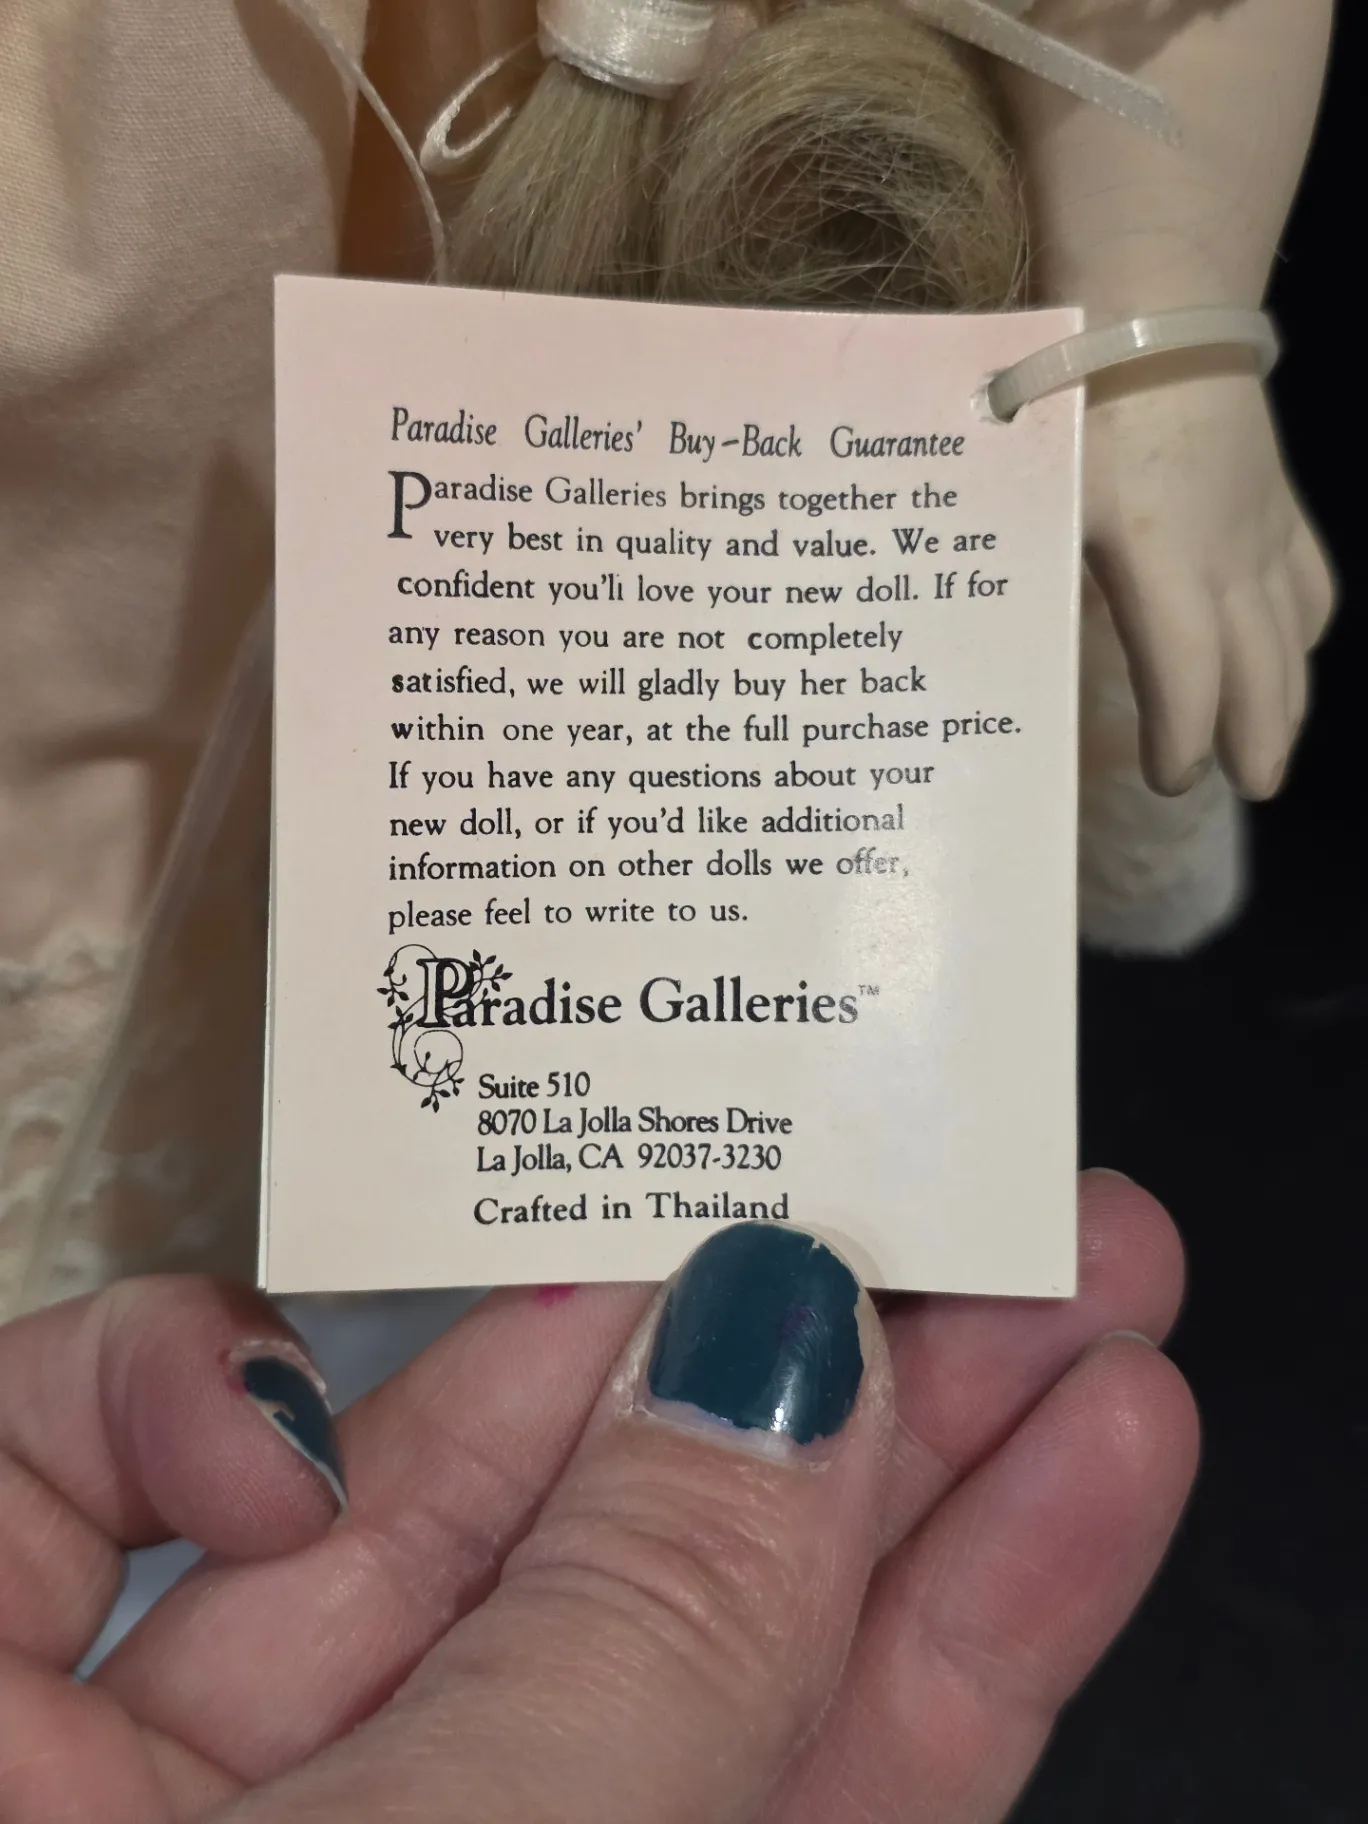 Paradise Galleries' Buy-Back Guarantee
Paradise Galleries brings together the
very best in quality and value. We are
confident you'll love your new doll. If for
any reason you are not completely
satisfied, we will gladly buy her back
within one year, at the full purchase price.
If you have any questions about your
new doll, or if you'd like additional
information on other dolls we offer,
please feel to write to us.
Paradise Galleries™
Suite 510
8070 La Jolla Shores Drive
La Jolla, CA 92037-3230
Crafted in Thailand